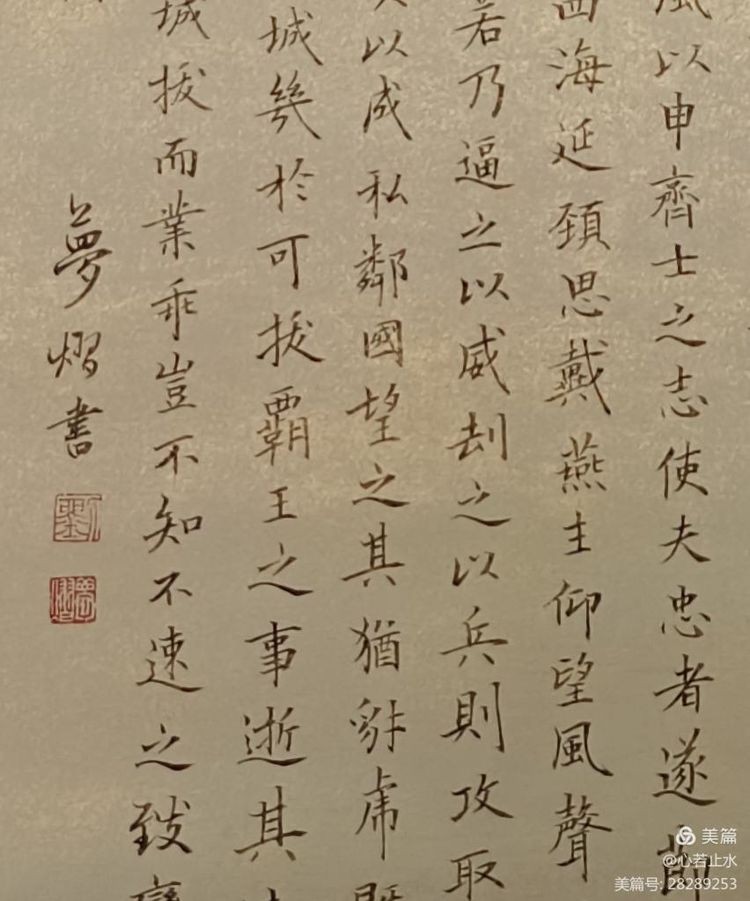 風以申齊士之志使夫忠者遂節
四海延頸思戴燕主仰望風聲
若乃逼之以威劫之以兵則攻取
以成私鄰國望之其猶豺虎既
城幾於可拔霸王之事逝其
城拔而業乖豈不知不速之致變
夢熠書
美篇
@心若止水
美篇号: 28289253